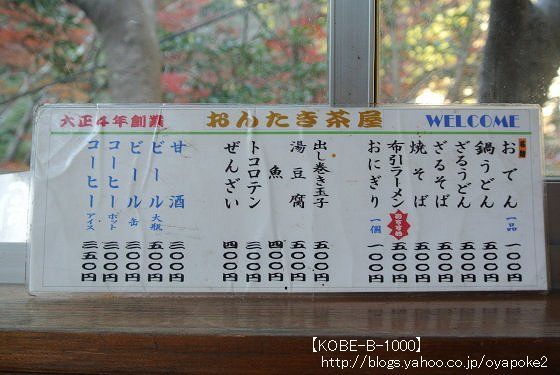 大正4年創業 おんたき茶屋 WELCOME
おでん 一品 一〇〇円
鍋うどん 五〇〇円
ざるうどん 五〇〇円
ざるそば 五〇〇円
焼そば 五〇〇円
布引ラーメン おすすめ 五〇〇円
おにぎり 一個 一〇〇円
出し巻き玉子 五〇〇円
湯豆腐 五〇〇円
魚 四〇〇円
トコロテン 三〇〇円
ぜんざい 四〇〇円
甘酒 三〇〇円
ビール 大瓶 五〇〇円
ビール 缶 三〇〇円
コーヒー ホット 三〇〇円
コーヒー アイス 三五〇円
【KOBE-B-1000】
http://blogs.yahoo.co.jp/oyapoke2